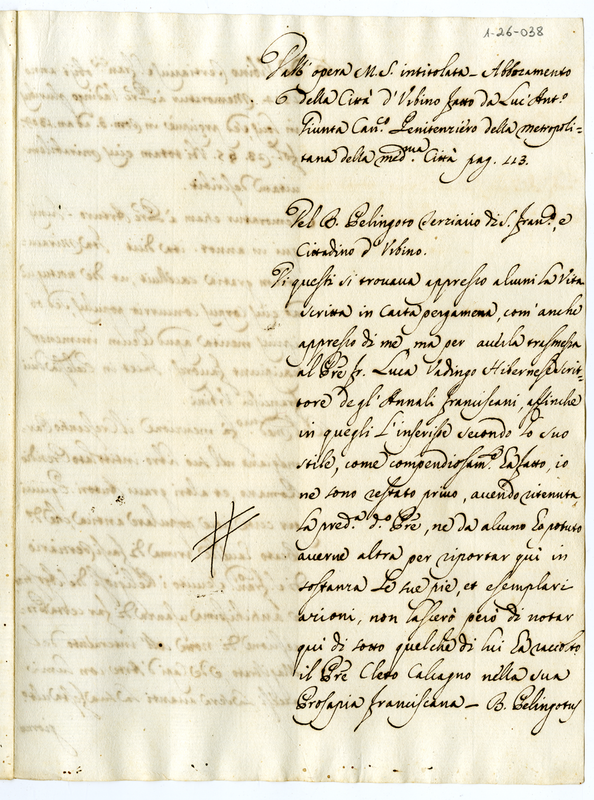 1-26-038
Dall' opera M. S. intitolata - Abbozamento
della Città d' Vrbino fatto da Luc' Ant.o
Giunta Can.o Penitenziero della Metropoli=
tana della med.ma Città pag. 113.
Del B. Pelingoto Terziario di S. Fran.o, e
Cittadino d' Vrbino.
Di questi si trovava appresso alcuni la Vita
scritta in carta pergamena, com' anche
appresso di me, ma per averla trasmessa
al Pre fr. Luca Vadingo Hibernese scrit=
tore degl' Annali Franciscani, affinche
in quegli l' inserisse secondo lo suo
stile, come compendiosam.te ha fatto, io
ne sono restato privo, avendo ritenuta
la pred.a d.o Pre, ne da alcuno ho potuto
averne altra per riportar qui in
sostanza le sue pie, et esemplari
azzioni, non lascerò però di notar
qui di sotto quelche di lui ha raccolto
il Pre Cleto Calcagno nella sua
Prosapia Franciscana - B. Pelingotus